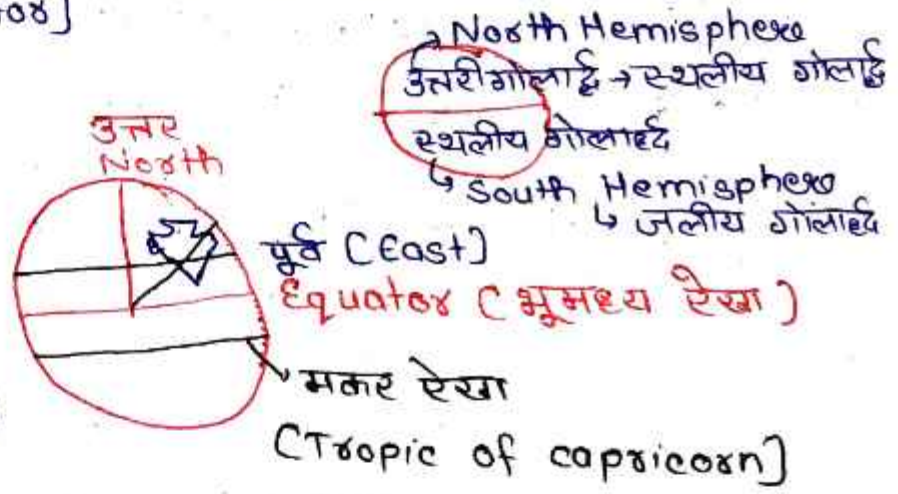 or]
North Hemisphere
उत्तरी गोलार्द्ध → स्थलीय गोलार्द्ध
स्थलीय गोलार्हद
South Hemisphere
जलीय गोलार्हद
उत्तर
North
पूर्व (East]
Equator (भूमध्य रेखा)
मकर रेखा
(Tropic of capricorn]